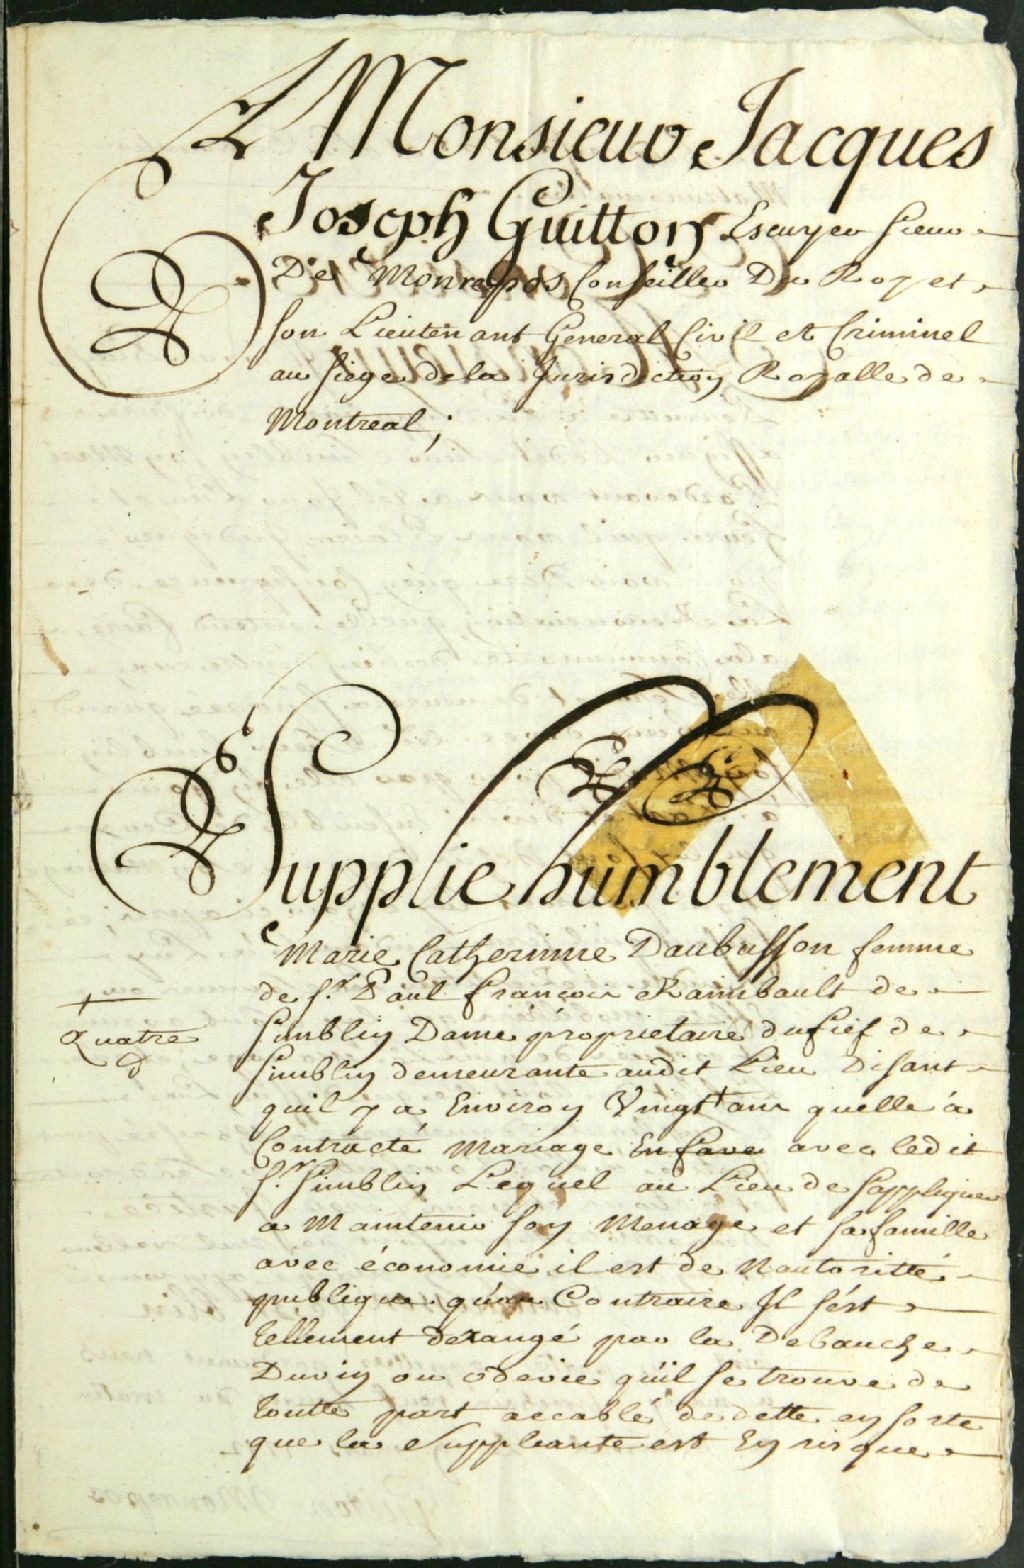 A Monsieur Jacques
Joseph Guitton Escuyer sieur
De Monrepos Conseiller Du Roy et
son Lieutenant General Civil et Criminel
au siege de la Jurisdiction Royalle de
Montreal ;
Supplie humblement
Marie Catherinne Daubusson femme
de sr. Paul françois Raimbault de
Simblin Dame propriétaire du fief de
Simblin demeurante audit Lieu Disant
quil y a Environ Vingt ans quelle à
Contracté Mariage En face avec ledit
sr. Simblin Lequel au Lieu de sappliquer
a Maintenir son Menage et sa famille
avec économie il est de Nautoritté
publique qu'au Contraire Il sést
tellement derangé par la Debauche
Duvin ou odevie quil se trouve de
toutte part accablé de dette en sorte
que la Suppliante est En risque
Quatre